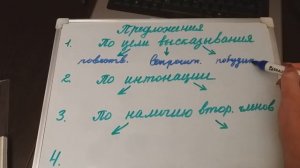 Предложения
1. По цели высказывания
повеств. Вопросит. побудит
2. По интонации
3. По наличию втор. членов
4.